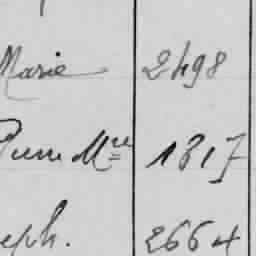 Marie 2498
Pierre Mce 1317
eph. 2664